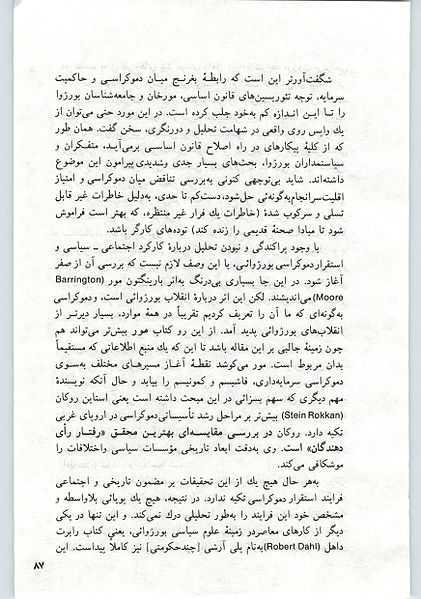 شگفت‌آورتر این است که رابطهٔ بغرنج میان دموکراسی و حاکمیت
سرمایه، توجه تئوریسین‌های قانون اساسی، مورخان و جامعه‌شناسان بورژوا
را تـا ایـن انـدازه کم به‌خود جلب کرده است. در این مورد حتی می‌توان از
یك واپس روی واقعی در شهامت تحلیل و دورنگری، سخن گفت. همان طور
که از کلیهٔ پیکارهای در راه اصلاح قانون اساسی برمی‌آیـد، متفکـران و
سیاستمداران بورژوا، بحث‌های بسیار جدی وشدیدی پیرامون این موضوع
داشته‌اند. شاید بی‌توجهی کنونی به‌بررسی تناقض میان دموکراسی و امتیاز
اقلیت‌سرانجام‌به‌گونه‌ئی حل‌شود، دست‌کم تا حدی، به‌دلیل خاطرات غیر قابل
تسلی و سرکوب شدهٔ (خاطرات یك فرار غیر منتظره، که بهتر است فراموش
شود تا مبادا صحنهٔ قدیمی را زنده کند) توده‌های کارگر باشد.
با وجود پراکندگی و نبودن تحلیل دربارهٔ کارکرد اجتماعی – سیاسی و
استقرار دموکراسی بورژوائی، با این وصف لازم نیست که بررسی آن از صفر
آغاز شود. در این جا بسیاری بی‌درنگ به‌اثر بارینگتون مور (Barrington
Moore) می‌اندیشند. لکن این اثر دربارهٔ انقلاب بورژوائی است، و دموکراسی
به‌گونه‌ای که ما آن را تعریف کردیم تقریباً در همهٔ موارد، بسیار دیرتر از
انقلاب‌های بورژوائی پدید آمد. از این رو کتاب مور بیش‌تر می‌تواند هم
چون زمینهٔ جالبی بر این مقاله باشد تا این که یك منبع اطلاعاتی که مستقیماً
بدان مربوط است. مور می‌کوشد نقطهٔ آغـاز مسیرهـای مختلف به‌سـوی
دموکراسی سرمایه‌داری، فاشیسم و کمونیسم را بیابد و حال آنکه نویسندهٔ
مهم دیگری که سهم بسزائی در این مبحث داشته است یعنی استاین روکان
(Stein Rokkan) بیش‌تر بر مراحل رشد تأسیساتی‌دموکراسی در اروپای غربی
تکیه دارد. روکان در بررسی مقایسه‌ای بهتریـن محقـق «رفتـار رأی
دهندگان» است. وی به‌دقت ابعاد تاریخی مؤسسات سیاسی واختلافات را
موشکافی می‌کند.
به‌هر حال هیچ یك از این تحقیقات بر مضمون تاریخی و اجتماعی
فرایند استقرار دموکراسی تکیه ندارد. در نتیجه، هیچ یك پویائی بلاواسطه و
مشخص خود این فرایند را به‌طور تحلیلی درك نمی‌کند. و این تنها در یکی
دیگر از کارهای معاصردر زمینهٔ علوم سیاسی بورژوائی، یعنی کتاب رابرت
داهل (Robert Dahl) به‌نام پلی آرشی [چندحکومتی] نیز کاملاً پیداست. این
۸۷